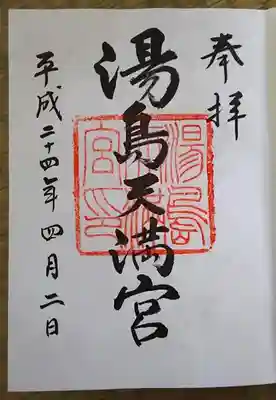 奉拝
湯島天満宮
平成二十四年四月二日